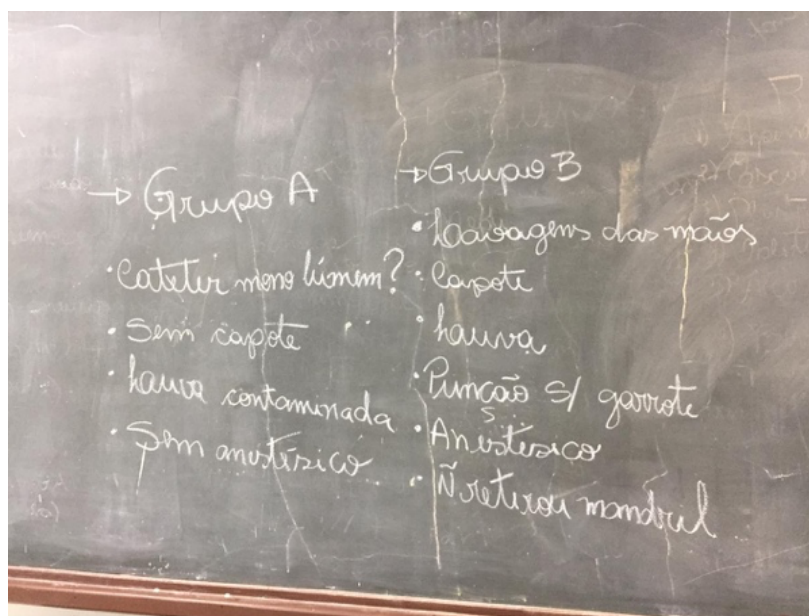 → Grupo A
• Cateter mono lúmem?
• Sem capote
• Luva contaminada
• Sem anestésico
→ Grupo B
• Lavagens das mãos
• Capote
• Luva
• Punção s/ garrote
• Anestésico
• Ñ retirou mandril